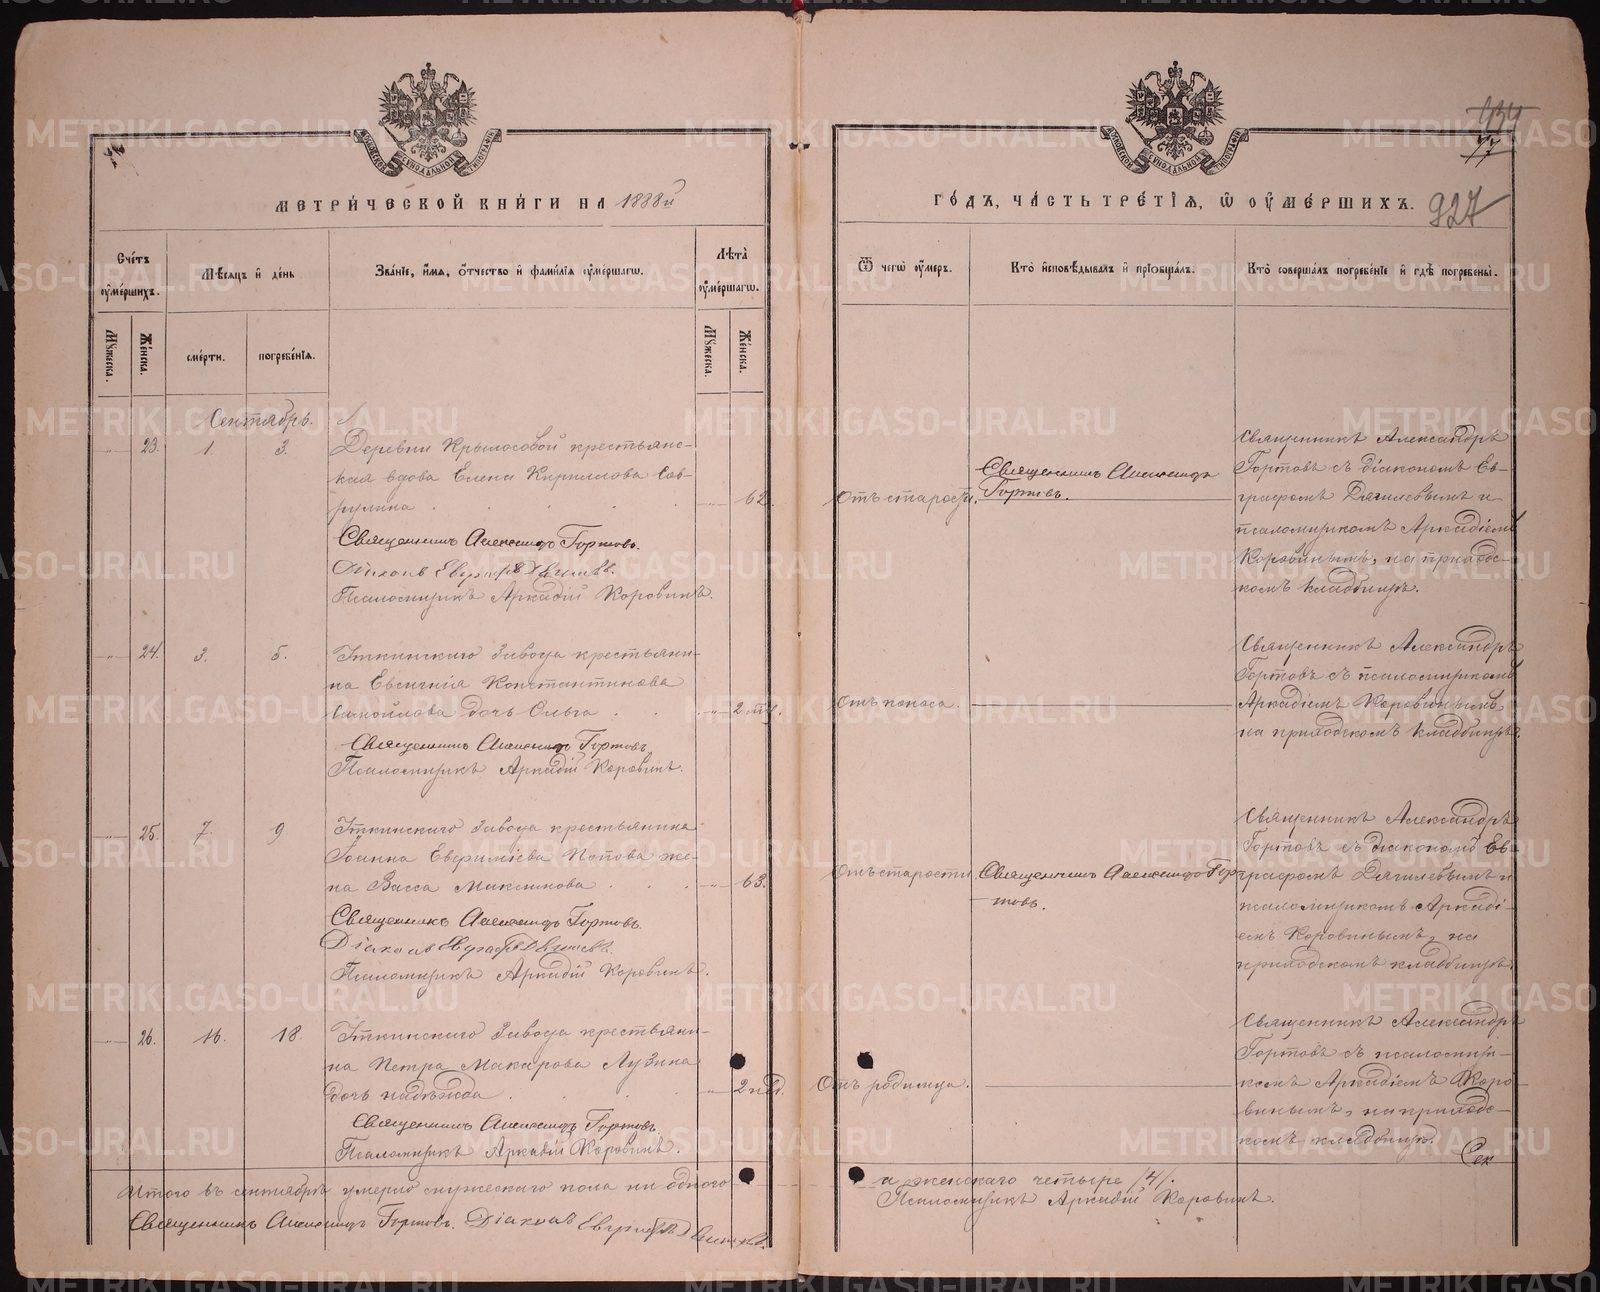 434
77
927
МЕТРИ́ЧЕСКОЙ КНИ́ГИ НА 1888й
ГО́ДЪ, ЧА́СТЬ ТРЕ́ТІЯ, Ѿ ОУМЕ́РШИХЪ.
Сче́тъ оуме́ршихъ.
Мѣ́сяцъ и день
Зва́ніе, и́мя, о́тчество и фами́лія оуме́ршагѡ.
Лѣ́та оуме́ршагѡ.
Ѿ чегѡ̀ оу́меръ.
Кто̀ исповѣ́дывалъ и пріобща́лъ.
Кто̀ соверша́лъ погребе́ніе и гдѣ̀ погребены̀.
Мꙋ́жеска.
Же́нска.
сме́рти.
погребе́нія.
Мꙋ́жеска.
Же́нска.
Сентябрь.
23. 1. 3.
Деревни Крылосовой крестьянс-
кая вдова Елена Кириллова Сав-
рулина
62.
Священникъ Александръ Гортовъ.
Діаконъ Евграфъ Дягилевъ.
Псаломщикъ Аркадій Коровинъ.
Отъ старости.
Священникъ Александръ
Гортовъ.
Священникъ Александръ
Гортовъ съ діакономъ Ев-
графомъ Дягилевымъ и
псаломщикомъ Аркадіемъ
Коровинымъ, на приходс-
комъ кладбищѣ.
24. 3. 5.
Уткинскаго Завода крестьяни-
на Евгенія Константинова
Самойлова дочь Ольга
2 м.
Священникъ Александръ Гортовъ.
Псаломщикъ Аркадій Коровинъ.
Отъ поноса.
Священникъ Александръ
Гортовъ съ псаломщикомъ
Аркадіемъ Коровинымъ
на приходскомъ кладбищѣ.
25. 7. 9
Уткинскаго Завода крестьянина
Іоанна Евфиміева Попова же-
на Васса Максимова
63.
Священникъ Александръ Гортовъ.
Діаконъ Евграфъ Дягилевъ.
Псаломщикъ Аркадій Коровинъ.
Отъ старости
Священникъ Александръ Гор-
товъ.
Священникъ Александръ
Гортовъ съ діакономъ Ев-
графомъ Дягилевымъ и
псаломщикомъ Аркаді-
емъ Коровинымъ, на
приходскомъ кладбищѣ.
26. 16. 18.
Уткинскаго Завода крестьяни-
на Петра Макарова Лузина
дочь Надежда
2 нед.
Священникъ Александръ Гортовъ.
Псаломщикъ Аркадій Коровинъ.
Отъ родимца.
Священникъ Александръ
Гортовъ съ псаломщи-
комъ Аркадіемъ Коро-
винымъ, на приходс-
комъ кладбищѣ.
Сек
Итого въ сентябрѣ умерло мужескаго пола ни одного
а женскаго четыре /4/.
Священникъ Александръ Гортовъ. Діаконъ Евграфъ Дягилевъ.
Псаломщикъ Аркадій Коровинъ.
METRIKI.GASO-URAL.RU